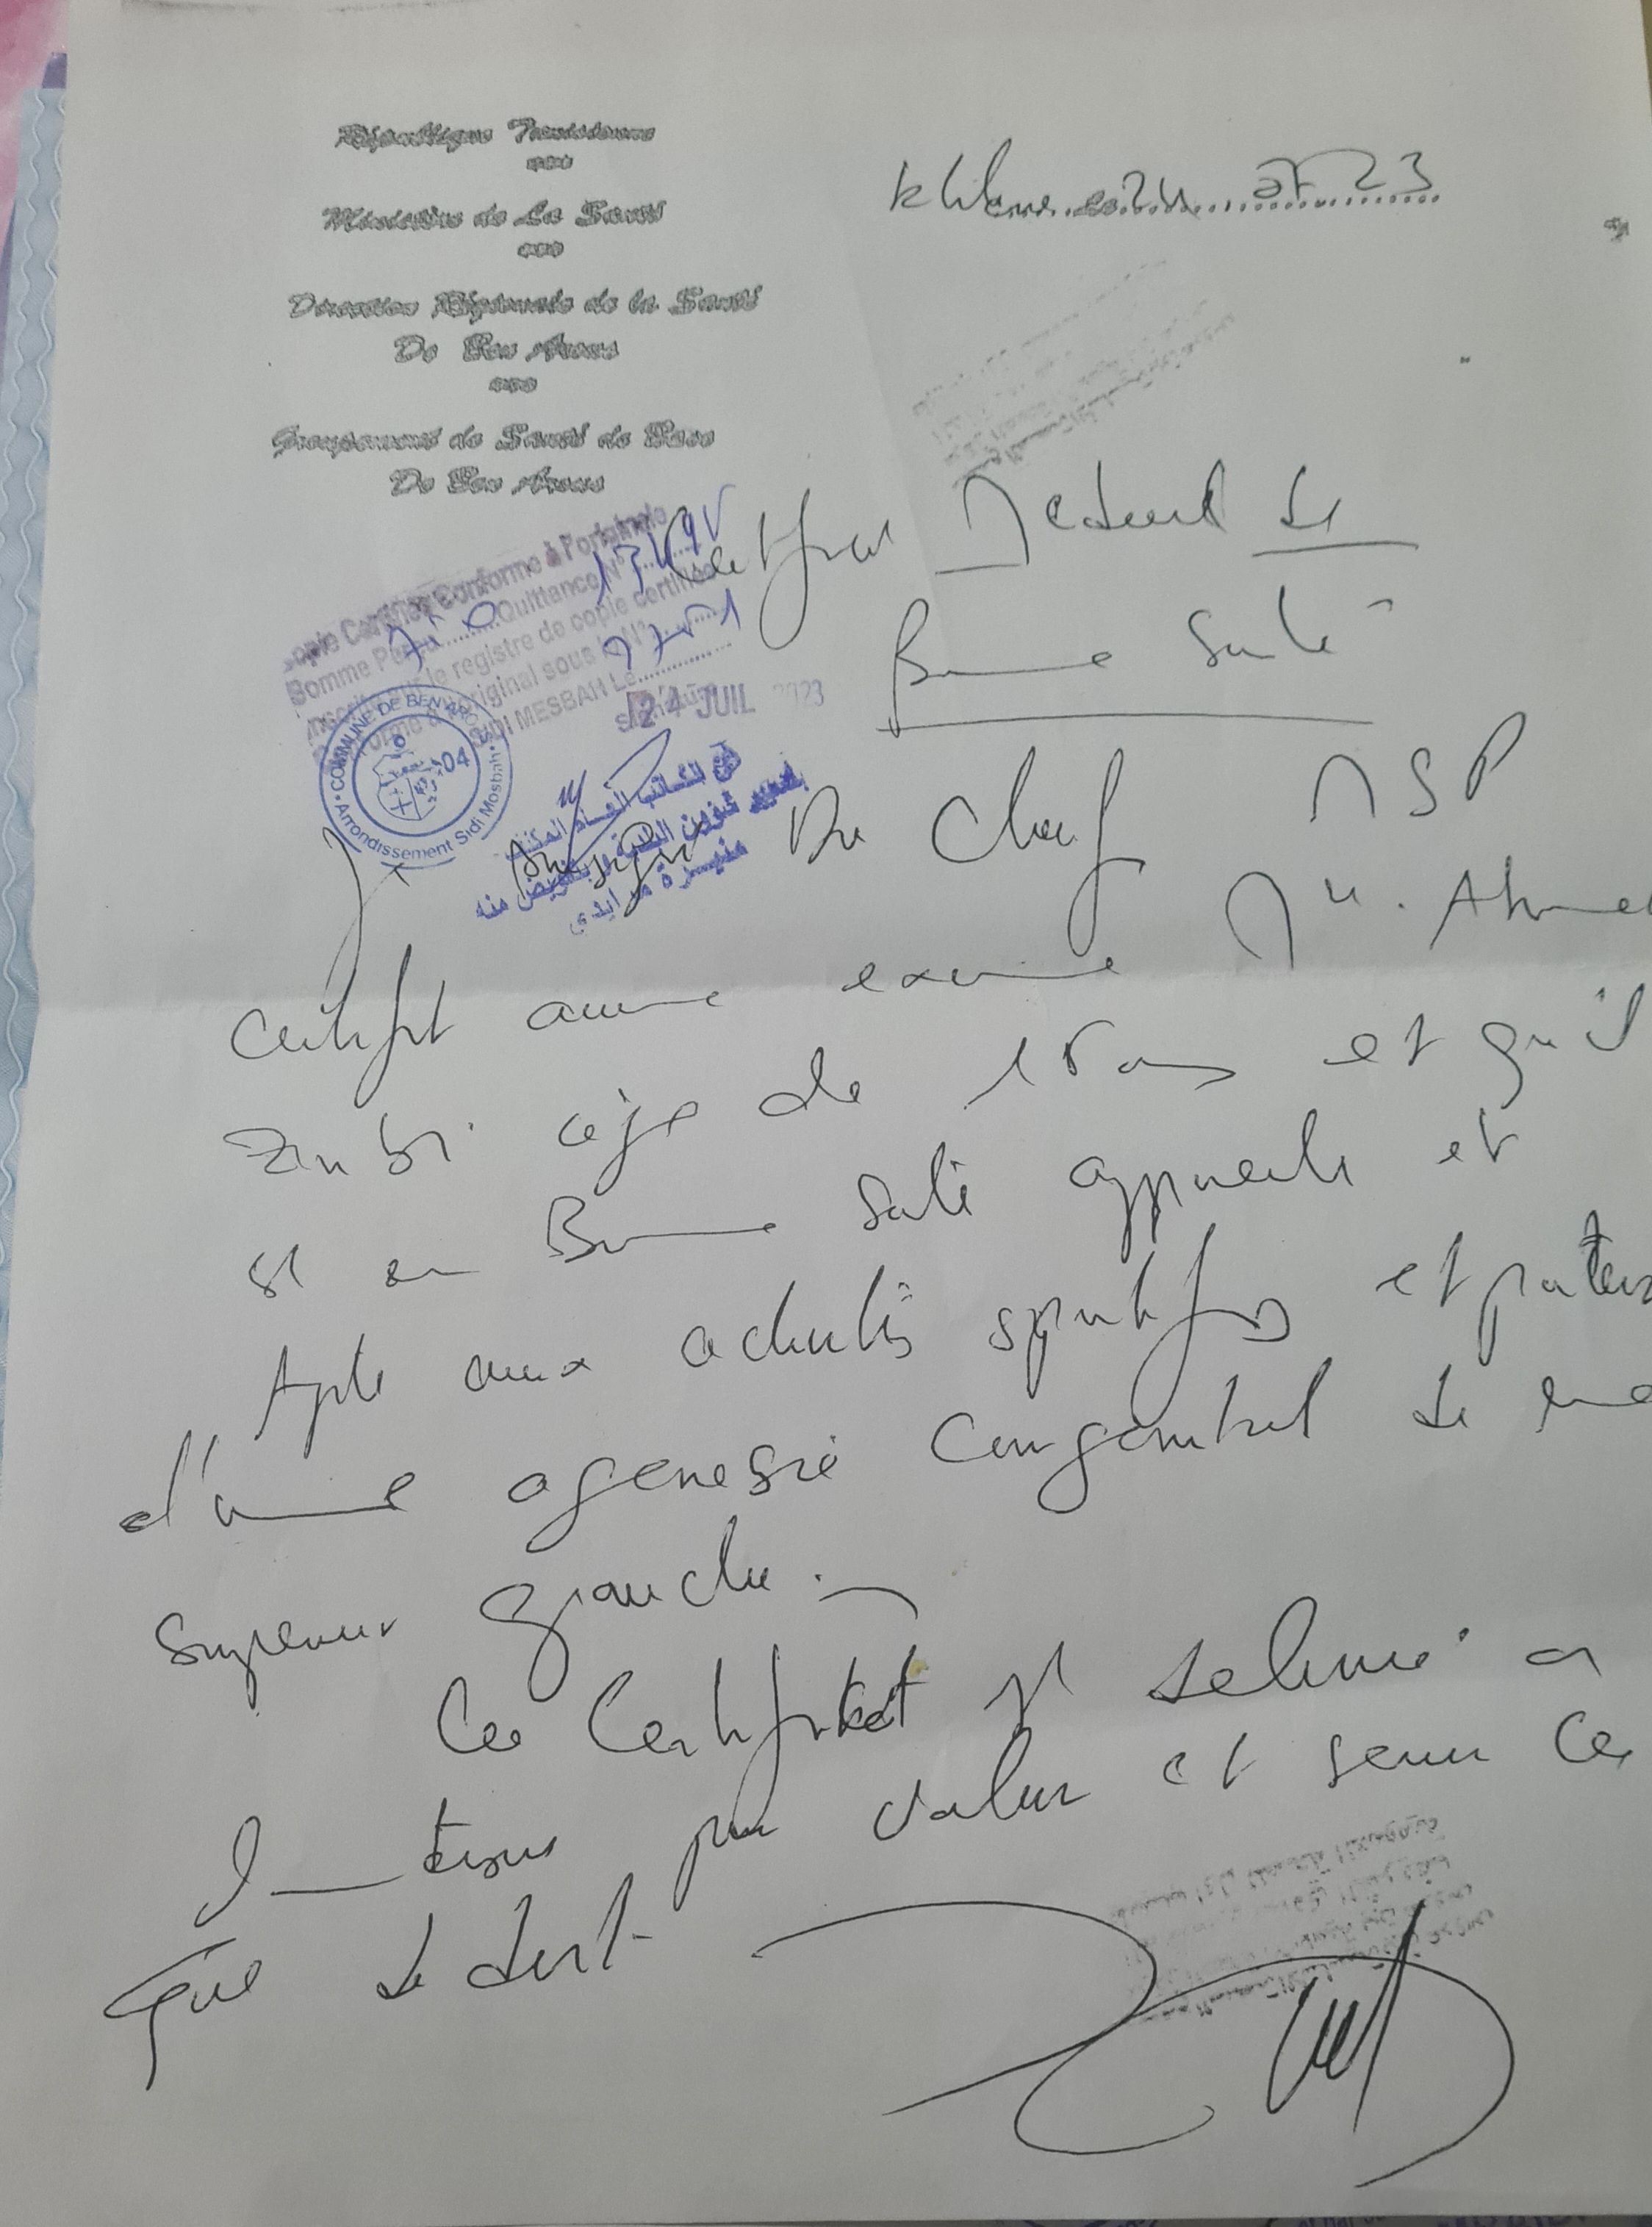 République Tunisienne
Ministère de La Santé
Direction Régionale de la Santé
De Ben Arous
Groupement de Santé de Base
De Ben Arous
24 07 23
Copie Certifiée Conforme à l'original
Somme Perçu Quittance N°
Inscrit sur le registre de copie certifiée
Conforme à l'original sous le N°
SIDI MESBAH Le
24 JUIL 2023
COMMUNE DE BEN AROUS
04
Arrondissement Sidi Mosbah
عن الكاتب العام المكلف
بتسيير شؤون البلدية وبتفويض منه
Certificat Medical de
Bonne Santé
Je soussigné Dr Chef MSP
Certifie avoir examiné Mr. Ahmed
agé de 15 ans et qu'il
est en Bonne Santé apparente et
Apte aux activités sportifs et porteur
d'une agenesie congenital de
superieur gauche.
Ce Certificat est delivré a
l'interessé pour valoir et servir ce
que de droit.